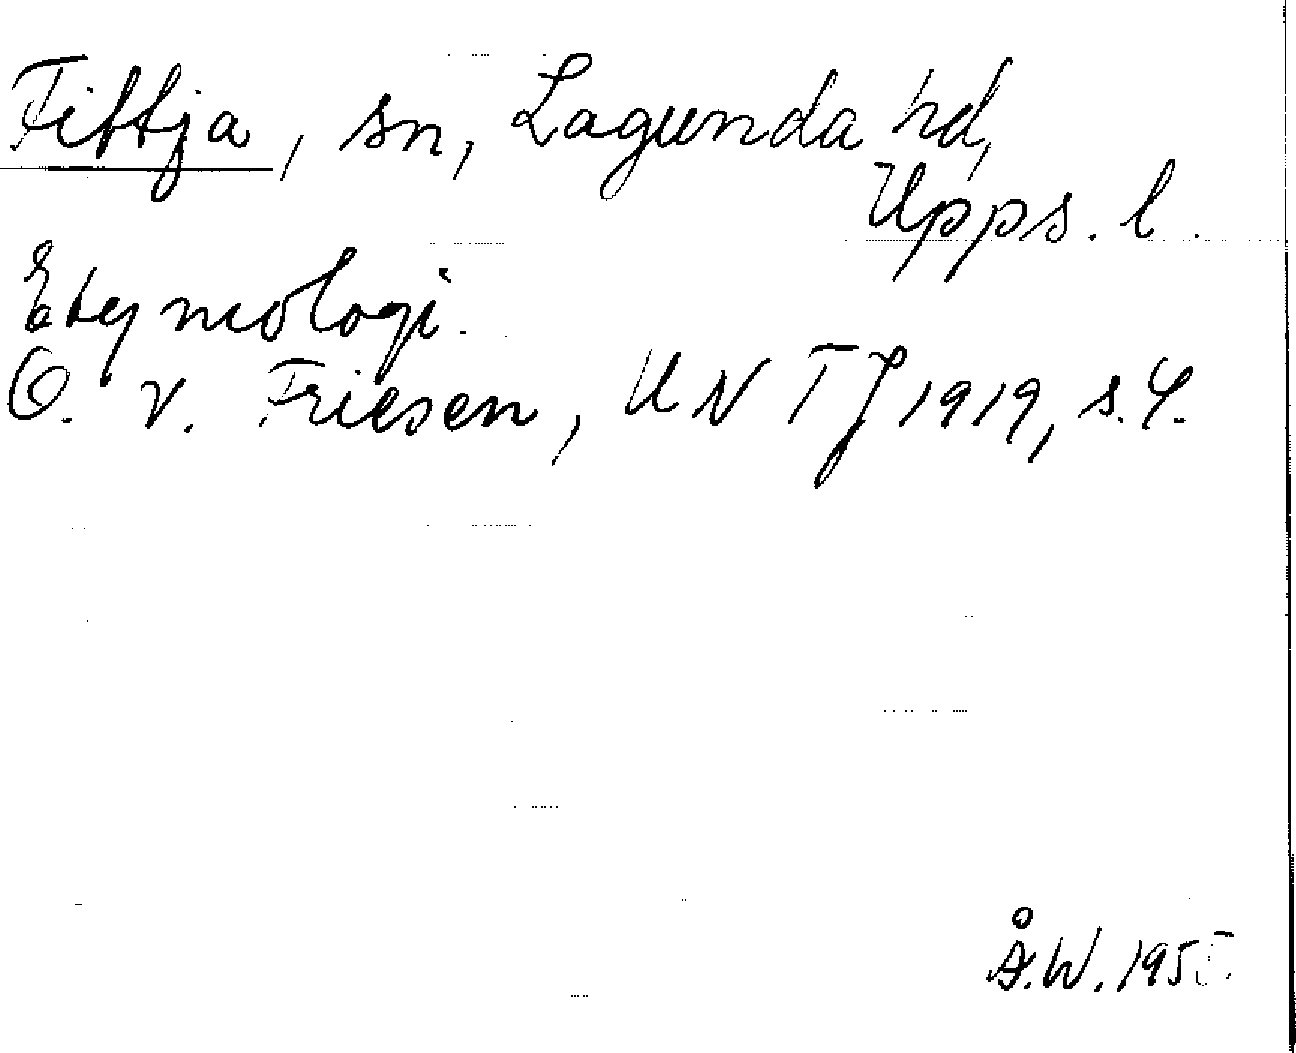 Fittja, sn, Lagunda hd,
Upps. l.
Etymologi.
O. v. Friesen, UNTJ 1919, s. 4.
Å.W. 1955.